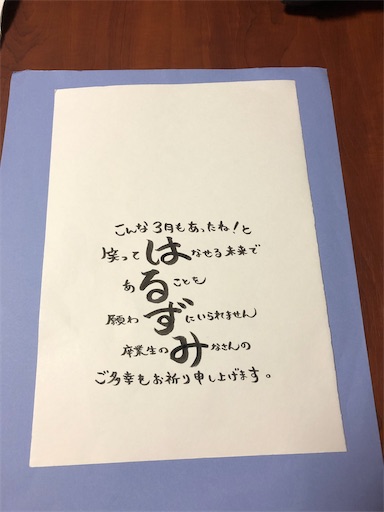 こんな3月もあったね!と
笑ってはなせる未来で
あることを
願わずにいられません
卒業生のみなさんの
ご多幸をお祈り申し上げます。